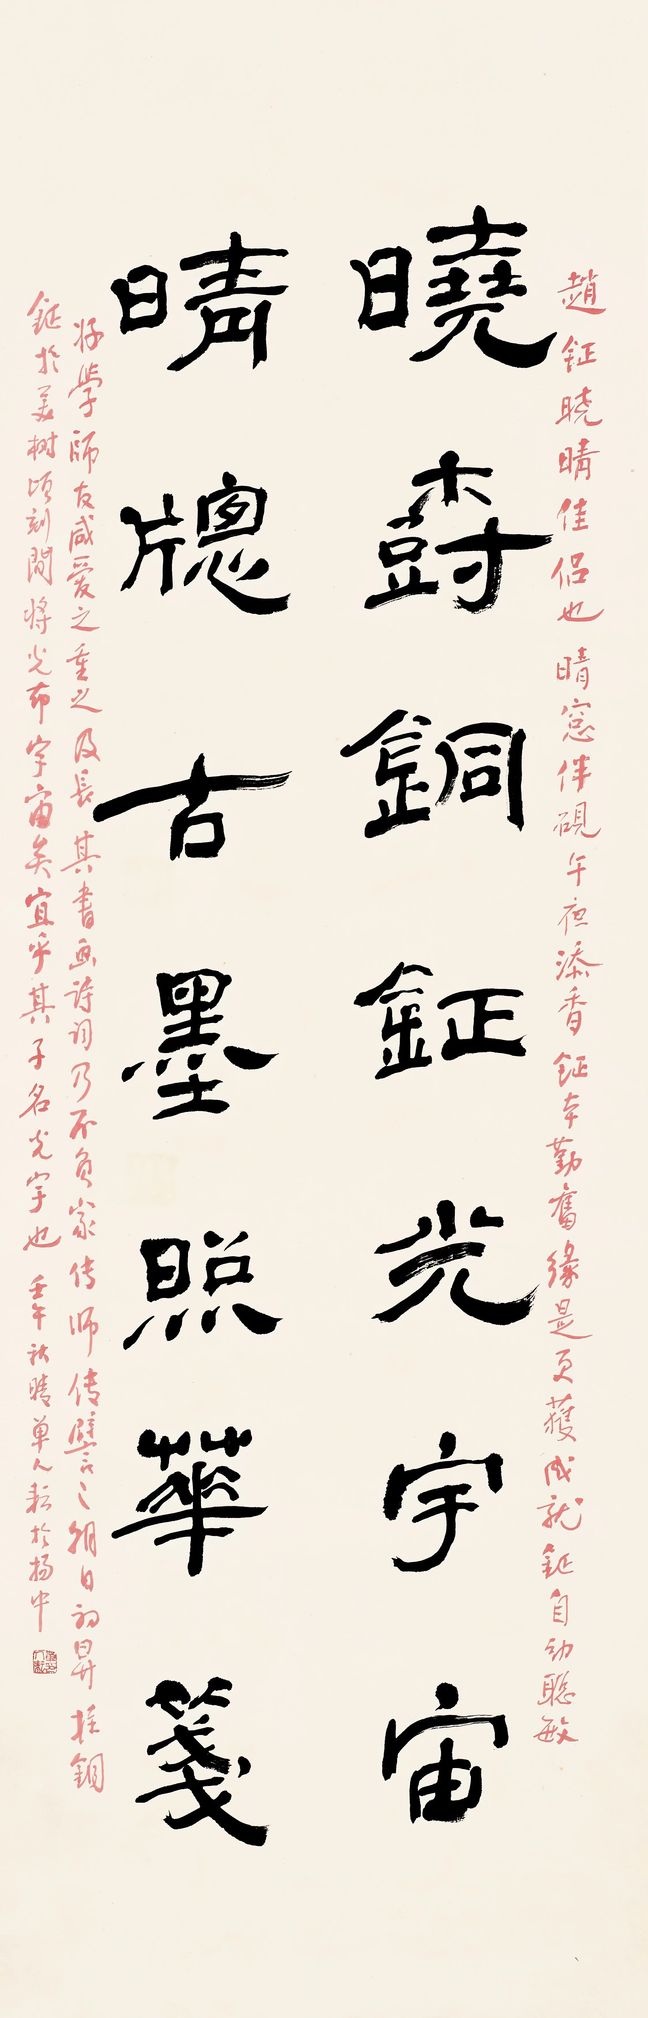 趙鉦曉晴佳侶也晴窓伴硯午夜添香鉦本勤奮緣是更獲成就鉦自幼聰敏
曉樹銅鉦光宇宙
晴牕古墨照華箋
好學師友咸愛之重之及長其書画诗词乃不負家传师传譬之朝日初昇挂銅
鉦於美树頃刻間將光布宇宙矣宜乎其子名光宇也 壬午秋晴單人耘於扬中